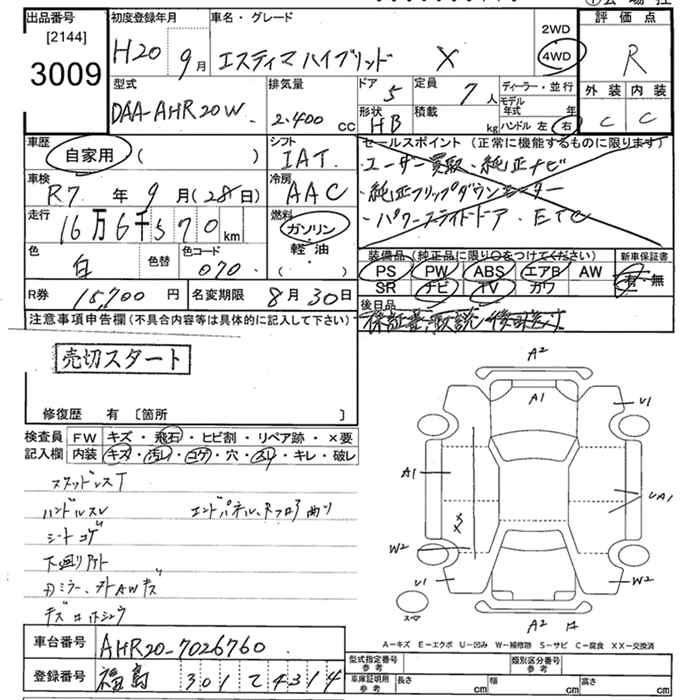 出品番号
[2144]
3009
初度登録年月
H20 9月
車名・グレード
エスティマハイブリッド X
2WD
4WD
評価点
R
外装 内装
C C
型式
DAA-AHR20W
排気量
2.400 cc
ドア 5
形状 HB
定員 7 人
積載 kg
ディーラー・並行
モデル年式 年
ハンドル 左 右
車歴
自家用 ( )
シフト
IAT
セールスポイント (正常に機能するものに限ります)
・ユーザー買取・純正ナビ
・純正フリップダウンモニター
・パワースライドドア. ETC
車検
R7 年 9 月 (28日)
冷房
AAC
走行
16万6千570 km
燃料
ガソリン
軽・油
( )
色
白
色替
色コード
070
装備品 (純正品に限り○をつけてください)
PS PW ABS エアB AW
SR ナビ TV カワ
新車保証書
有・無
R券 15,700 円
名変期限 8月30日
後日品
注意事項申告欄(不具合内容等は具体的に記入して下さい)
売切スタート
修復歴 有 [箇所 ]
検査員 FW キズ・飛石・ヒビ割・リペア跡・×要
記入欄 内装 キズ・汚レ・コゲ・穴・スレ・キレ・破レ
スタッドレスT
ハンドルスレ エンドパネル、Rフロア曲り
シートコゲ
下回りサビ
キズ
A2
A1
U1
A1
UA1
XX
W2
U1
W2
スーマ
A2
A-キズ E-エクボ U-凹み W-補修跡 S-サビ C-腐食 XX-交換済
車台番号 AHR20-7026760
登録番号 福島 301 て 4314
型式指定番号 参考
類別区分番号 参考
車庫証明用 参考 長さ cm 幅 cm 高さ cm